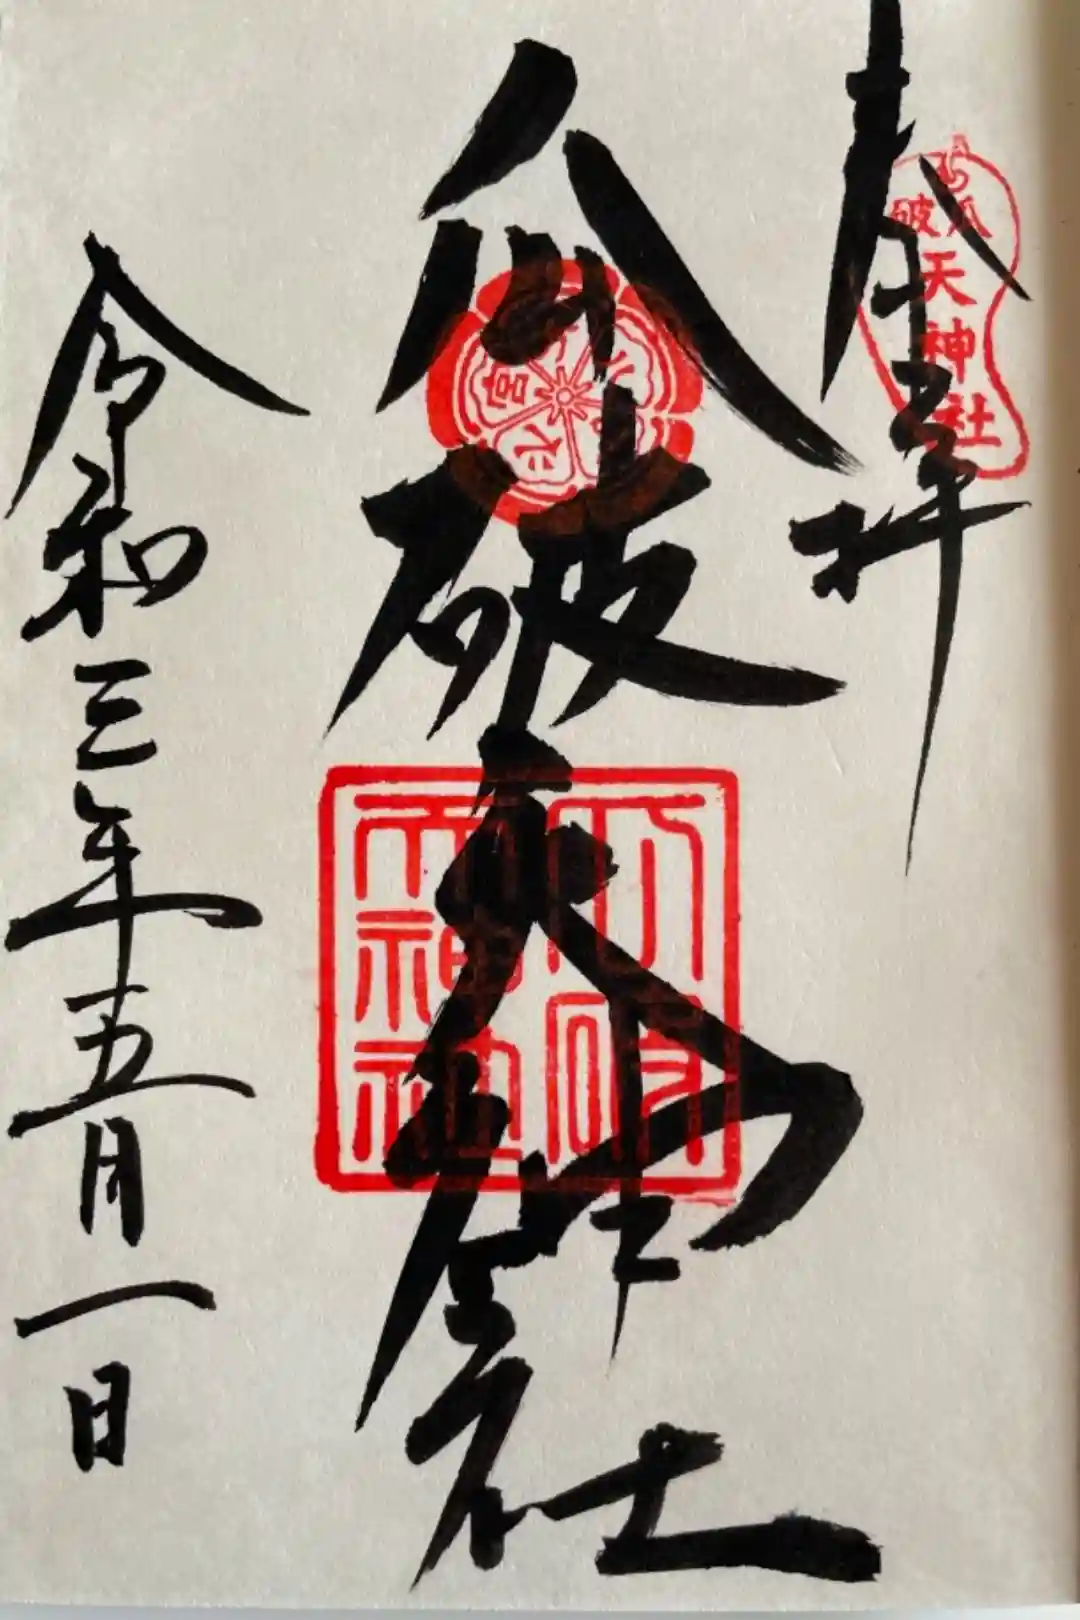 奉拝
瓜破
天神社
瓜破天神社
瓜破
天神社
令和三年五月一日